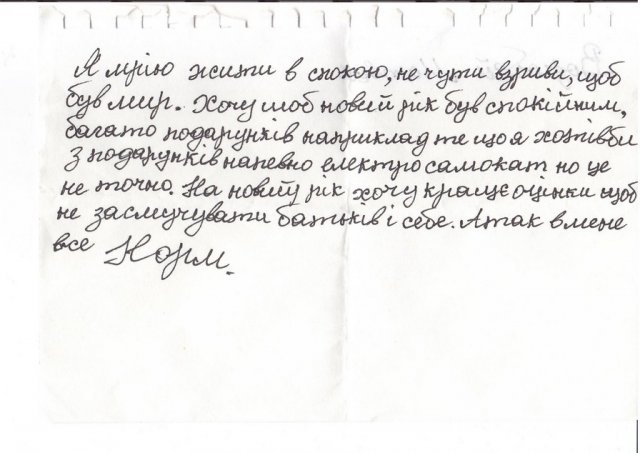 Я мрію жити в спокою, не чути взриви, щоб
був мир. Хочу щоб новий рік був спокійним,
багато подарунків наприклад те що я хотів би
з подарунків напевно електро самокат но це
не точно. На новий рік хочу кращє оцінки щоб
не засмучувати батьків і себе. А так в мене
все Норм.